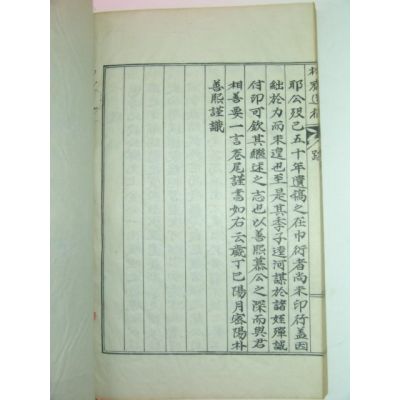 耶公歿已五十年遺稿之在巾衍者尚未印行盖因
絀於力而未遑也至是其季子達河謀於諸姪殫誠
付印可欽其繼述之志也以善熙慕公之深而與君
相善要一言卷尾謹書如右云歲丁巳陽月密陽朴
善熙謹識